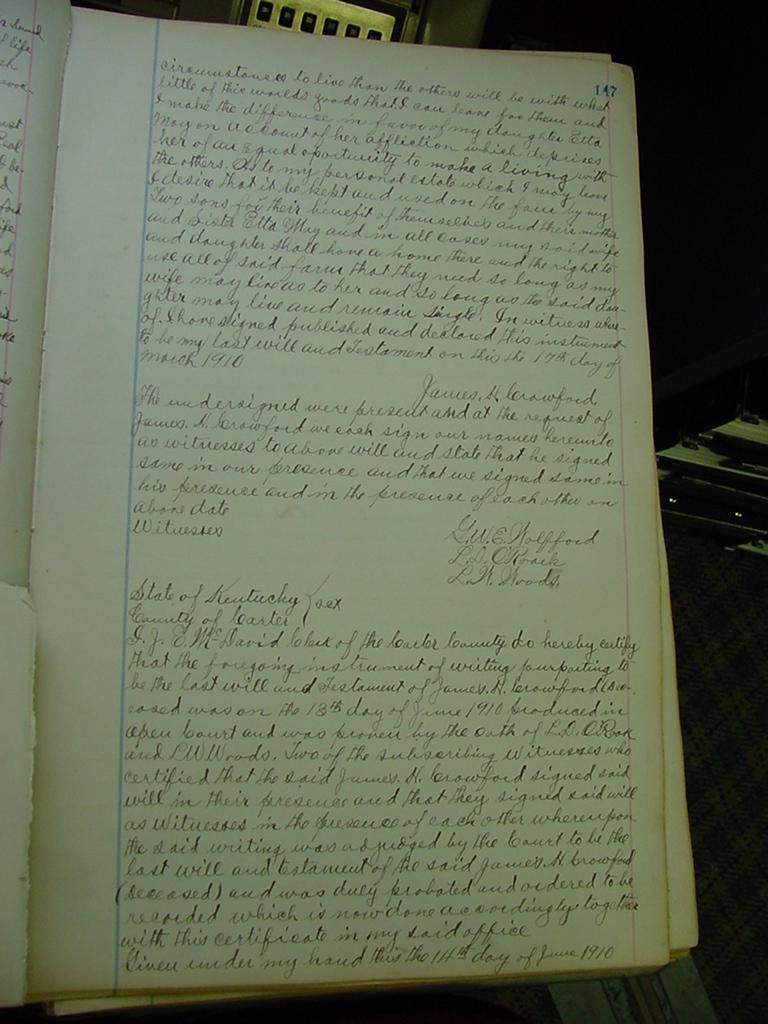 147
circumstances to live than the others will be with what
little of this worlds goods that I can leave for them and
I make the difference in favor of my daughter Etta
May on account of her affliction which deprives
her of an Equal oportunity to make a living with
the others. As to my personal estate which I may leave
I desire that it be kept and used on the farm by my
Two sons for their benefit of themselves and their mother
and Sister Etta May and in all cases my said wife
and daughter shall have a home there and the right to
use all of said farm that they need so long as my
wife may live as to her and so long as the said dau-
ghter may live and remain Single. In witness wher-
of I have signed published and declared this instrument
to be my last will and Testament on this the 17th day of
March 1910
James. H. Crawford
The undersigned were present and at the request of
James. H. Crawford we each sign our names hereunto
as witnesses to above will and state that he signed
same in our presence and that we signed same in
his presence and in the presence of each other on
above date
Witnesses
G.W.E. Wolfford
L.D. ORoark
L.W. Woods.
State of Kentucky
County of Carter } sct
I. J. E. McDavid Clerk of the Carter County do hereby certify
that the foregoing instrument of writing purporting to
be the last will and Testament of James. H. Crawford (Dec-
eased was on the 13th day of June 1910 produced in
open Court and was proven by the oath of L.D. ORoark
and L.W. Woods. Two of the subscribing Witnesses who
certified that the said James. H. Crawford signed said
will in their presence and that they signed said will
as Witnesses in the presence of each other whereupon
the said writing was adjudged by the Court to be the
last will and testament of the said James. H. Crawford
(Deceased) and was duly probated and ordered to be
recorded which is now done accordingly together
with this certificate in my said office
Given under my hand this the 14th day of June 1910